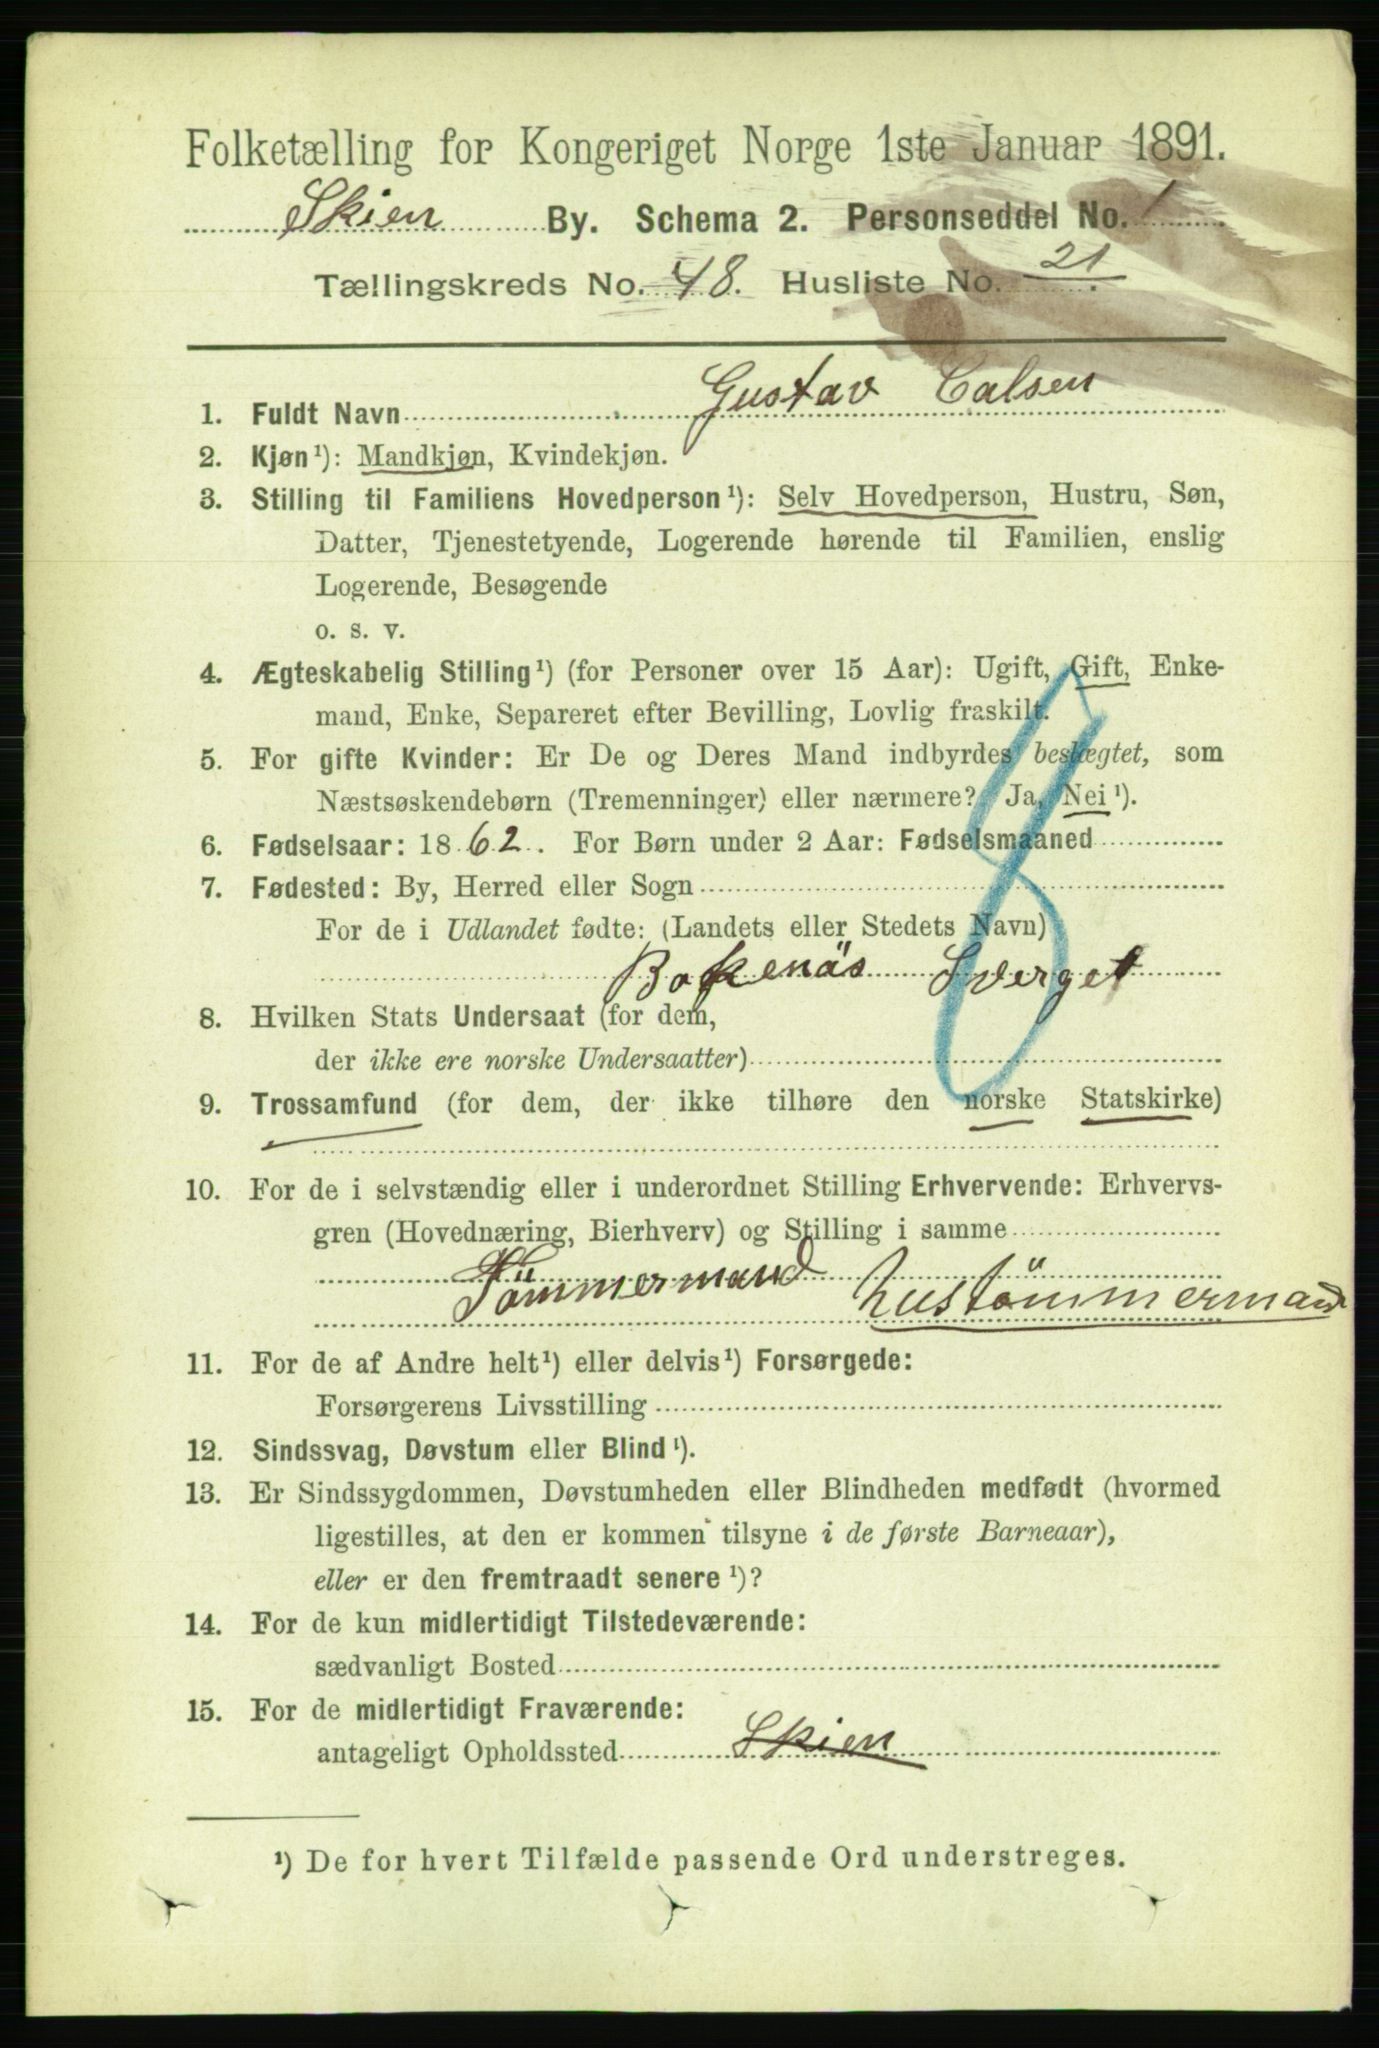 Folketælling for Kongeriget Norge 1ste Januar 1891.
Skien By. Schema 2. Personseddel No. 1
Tællingskreds No. 48. Husliste No. 21.
1. Fuldt Navn Gustav Calsen
2. Kjøn¹): Mandkjøn, Kvindekjøn.
3. Stilling til Familiens Hovedperson¹): Selv Hovedperson, Hustru, Søn,
Datter, Tjenestetyende, Logerende hørende til Familien, enslig
Logerende, Besøgende
o. s. v.
4. Ægteskabelig Stilling¹) (for Personer over 15 Aar): Ugift, Gift, Enke-
mand, Enke, Separeret efter Bevilling, Lovlig fraskilt.
5. For gifte Kvinder: Er De og Deres Mand indbyrdes beslægtet, som
Næstsøskendebørn (Tremenninger) eller nærmere? Ja, Nei¹).
6. Fødselsaar: 1862. For Børn under 2 Aar: Fødselsmaaned
7. Fødested: By, Herred eller Sogn
For de i Udlandet fødte: (Landets eller Stedets Navn)
Bokenäs Sverget
8. Hvilken Stats Undersaat (for dem,
der ikke ere norske Undersaatter)
9. Trossamfund (for dem, der ikke tilhøre den norske Statskirke)
10. For de i selvstændig eller i underordnet Stilling Erhvervende: Erhvervs-
gren (Hovednæring, Bierhverv) og Stilling i samme
Tömmermand hustömmermand
11. For de af Andre helt¹) eller delvis¹) Forsørgede:
Forsørgerens Livsstilling
12. Sindssvag, Døvstum eller Blind¹).
13. Er Sindssygdommen, Døvstumheden eller Blindheden medfødt (hvormed
ligestilles, at den er kommen tilsyne i de første Barneaar),
eller er den fremtraadt senere¹)?
14. For de kun midlertidigt Tilstedeværende:
sædvanligt Bosted
15. For de midlertidigt Fraværende:
antageligt Opholdssted Skien
¹) De for hvert Tilfælde passende Ord understreges.